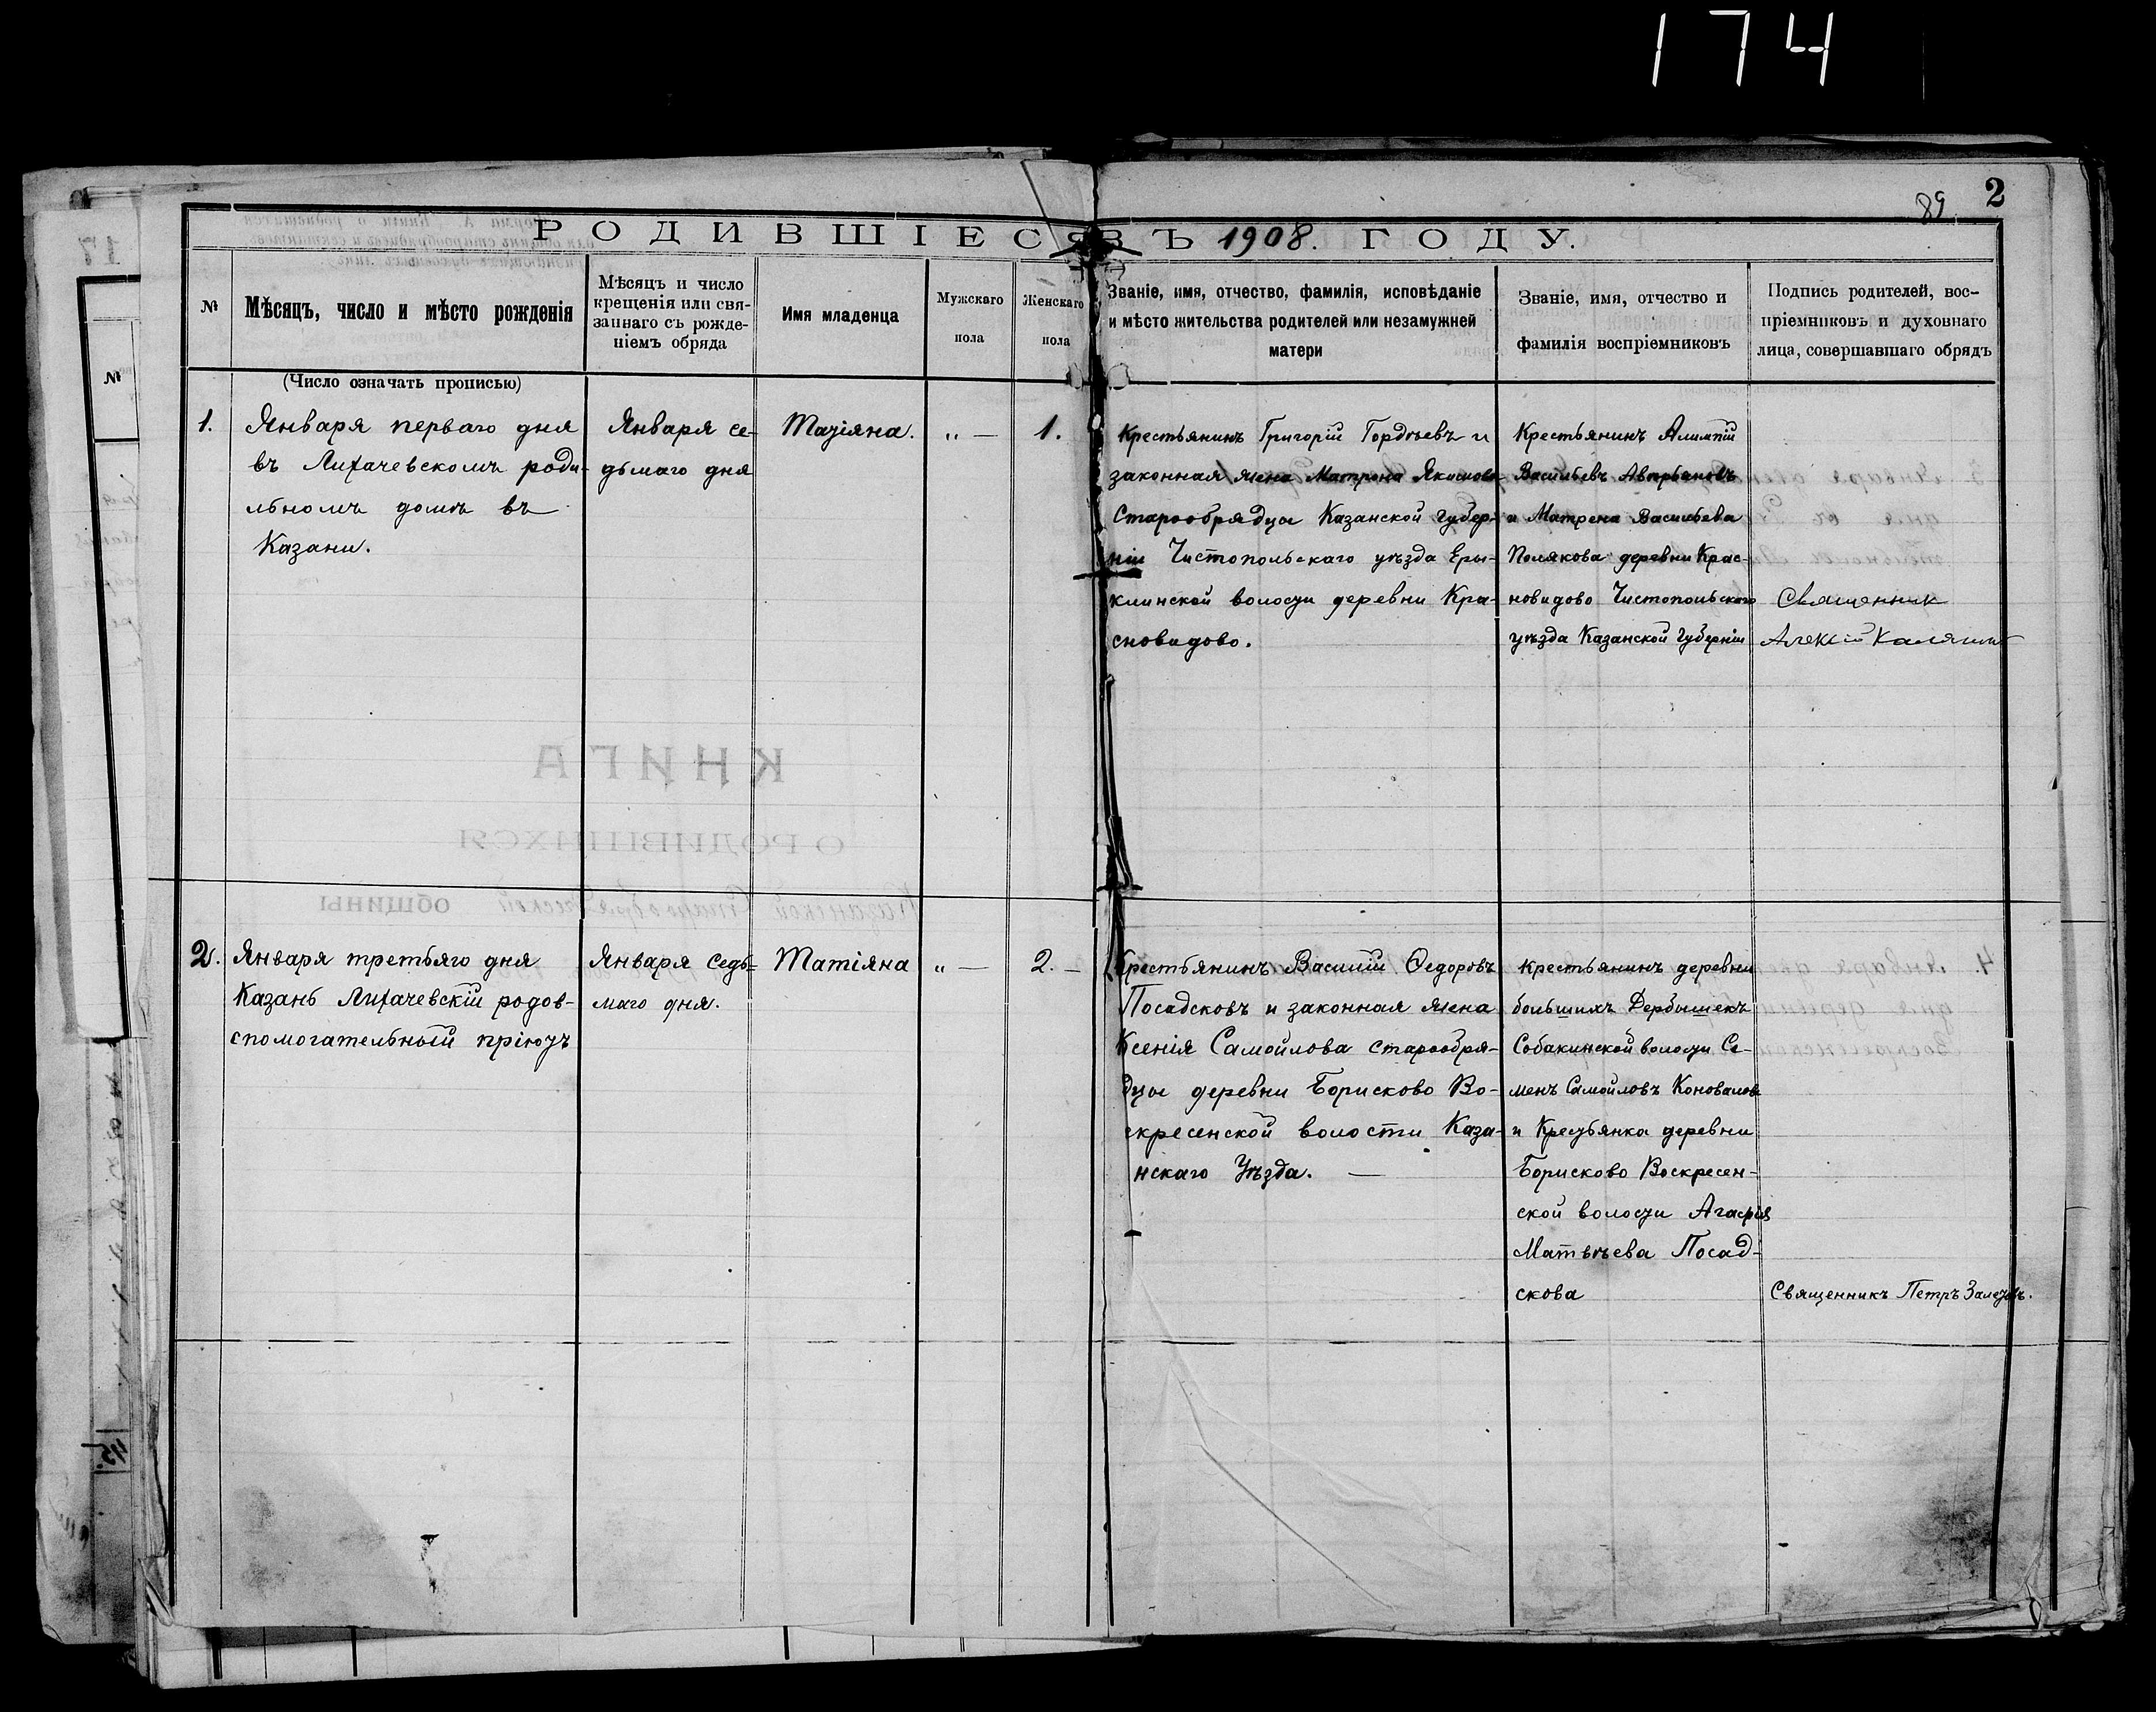 174
89
2
РОДИВШІЕСЯ ВЪ 1908. ГОДУ.
№
Мѣсяцъ, число и мѣсто рожденія
Мѣсяцъ и число
крещенія или свя-
заннаго съ рожде-
ніемъ обряда
Имя младенца
Мужскаго
пола
Женскаго
пола
Званіе, имя, отчество, фамилія, исповѣданіе
и мѣсто жительства родителей или незамужней
матери
Званіе, имя, отчество и
фамилія воспріемниковъ
Подпись родителей, вос-
пріемниковъ и духовнаго
лица, совершавшаго обрядъ
(Число означать прописью)
1.
Января перваго дня
въ Лихачевскомъ роди-
льномъ домѣ въ
Казани.
Января се-
дьмаго дня
Татіяна.
" —
1.
Крестьянинъ Григорій Гордѣевъ и
законная жена Матрона Якимова
Старообрядцы Казанской губер-
ніи Чистопольскаго уѣзда Еры-
клинской волости деревни Кра-
сновидово.
Крестьянинъ Алимпій
Васильевъ
и Матрена Васильева
Полякова деревни Крас-
новидово Чистопольскаго
уѣзда Казанской Губерніи
Священник
Алексій
2.
Января третьяго дня
Казань Лихачевскій родов-
спомогательный пріютъ
Января Седь-
маго дня.
Татіяна
" —
2. —
Крестьянинъ Василій Ѳедоровъ
Посадсковъ и законная жена
Ксенія Самойлова старообря-
дцы деревни Борисково Во-
скресенской волости Каза-
нскаго Уѣзда. —
крестьянинъ деревни
большихъ Дербышекъ
Собакинской волости Се-
менъ Самойловъ Коновалов
и Крестьянка деревни
Борисково Воскресен-
ской волости Агафія
Матвѣева Посад-
скова
Священникъ Петръ Залетовъ.
№
КНИГА
О РОДИВШИХСЯ
Казанской Старообрядческой общины